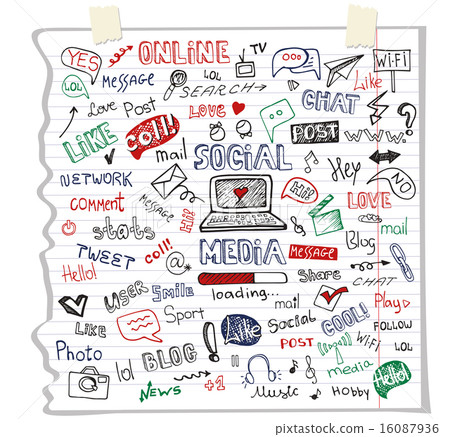 YES
ONLINE
TV
Wi-Fi
LOL
MESSAGE
LOL
Like
SEARCH
Love
Post
LOVE
CHAT
LiKE
Coll!
mail
POST
WWW.
?
SOCiAL
Hey
NO
NETWORK
Hi!
COMMENT
Hi!
LOVE
stats
MEDiA
MESSAGE
Blog
mail
TWEET
coll!
@
Hello!
Share
CHAT
USER
Smile
loading...
mail
Play
Like
Sport
!
Like
Social
COOL!
FOLLOW
POST
WiFi
Photo
lol
BLOG!
media
Hello!
NEWS
+1
Music
HOBBY
PIXTA
pixta.jp - 16087936